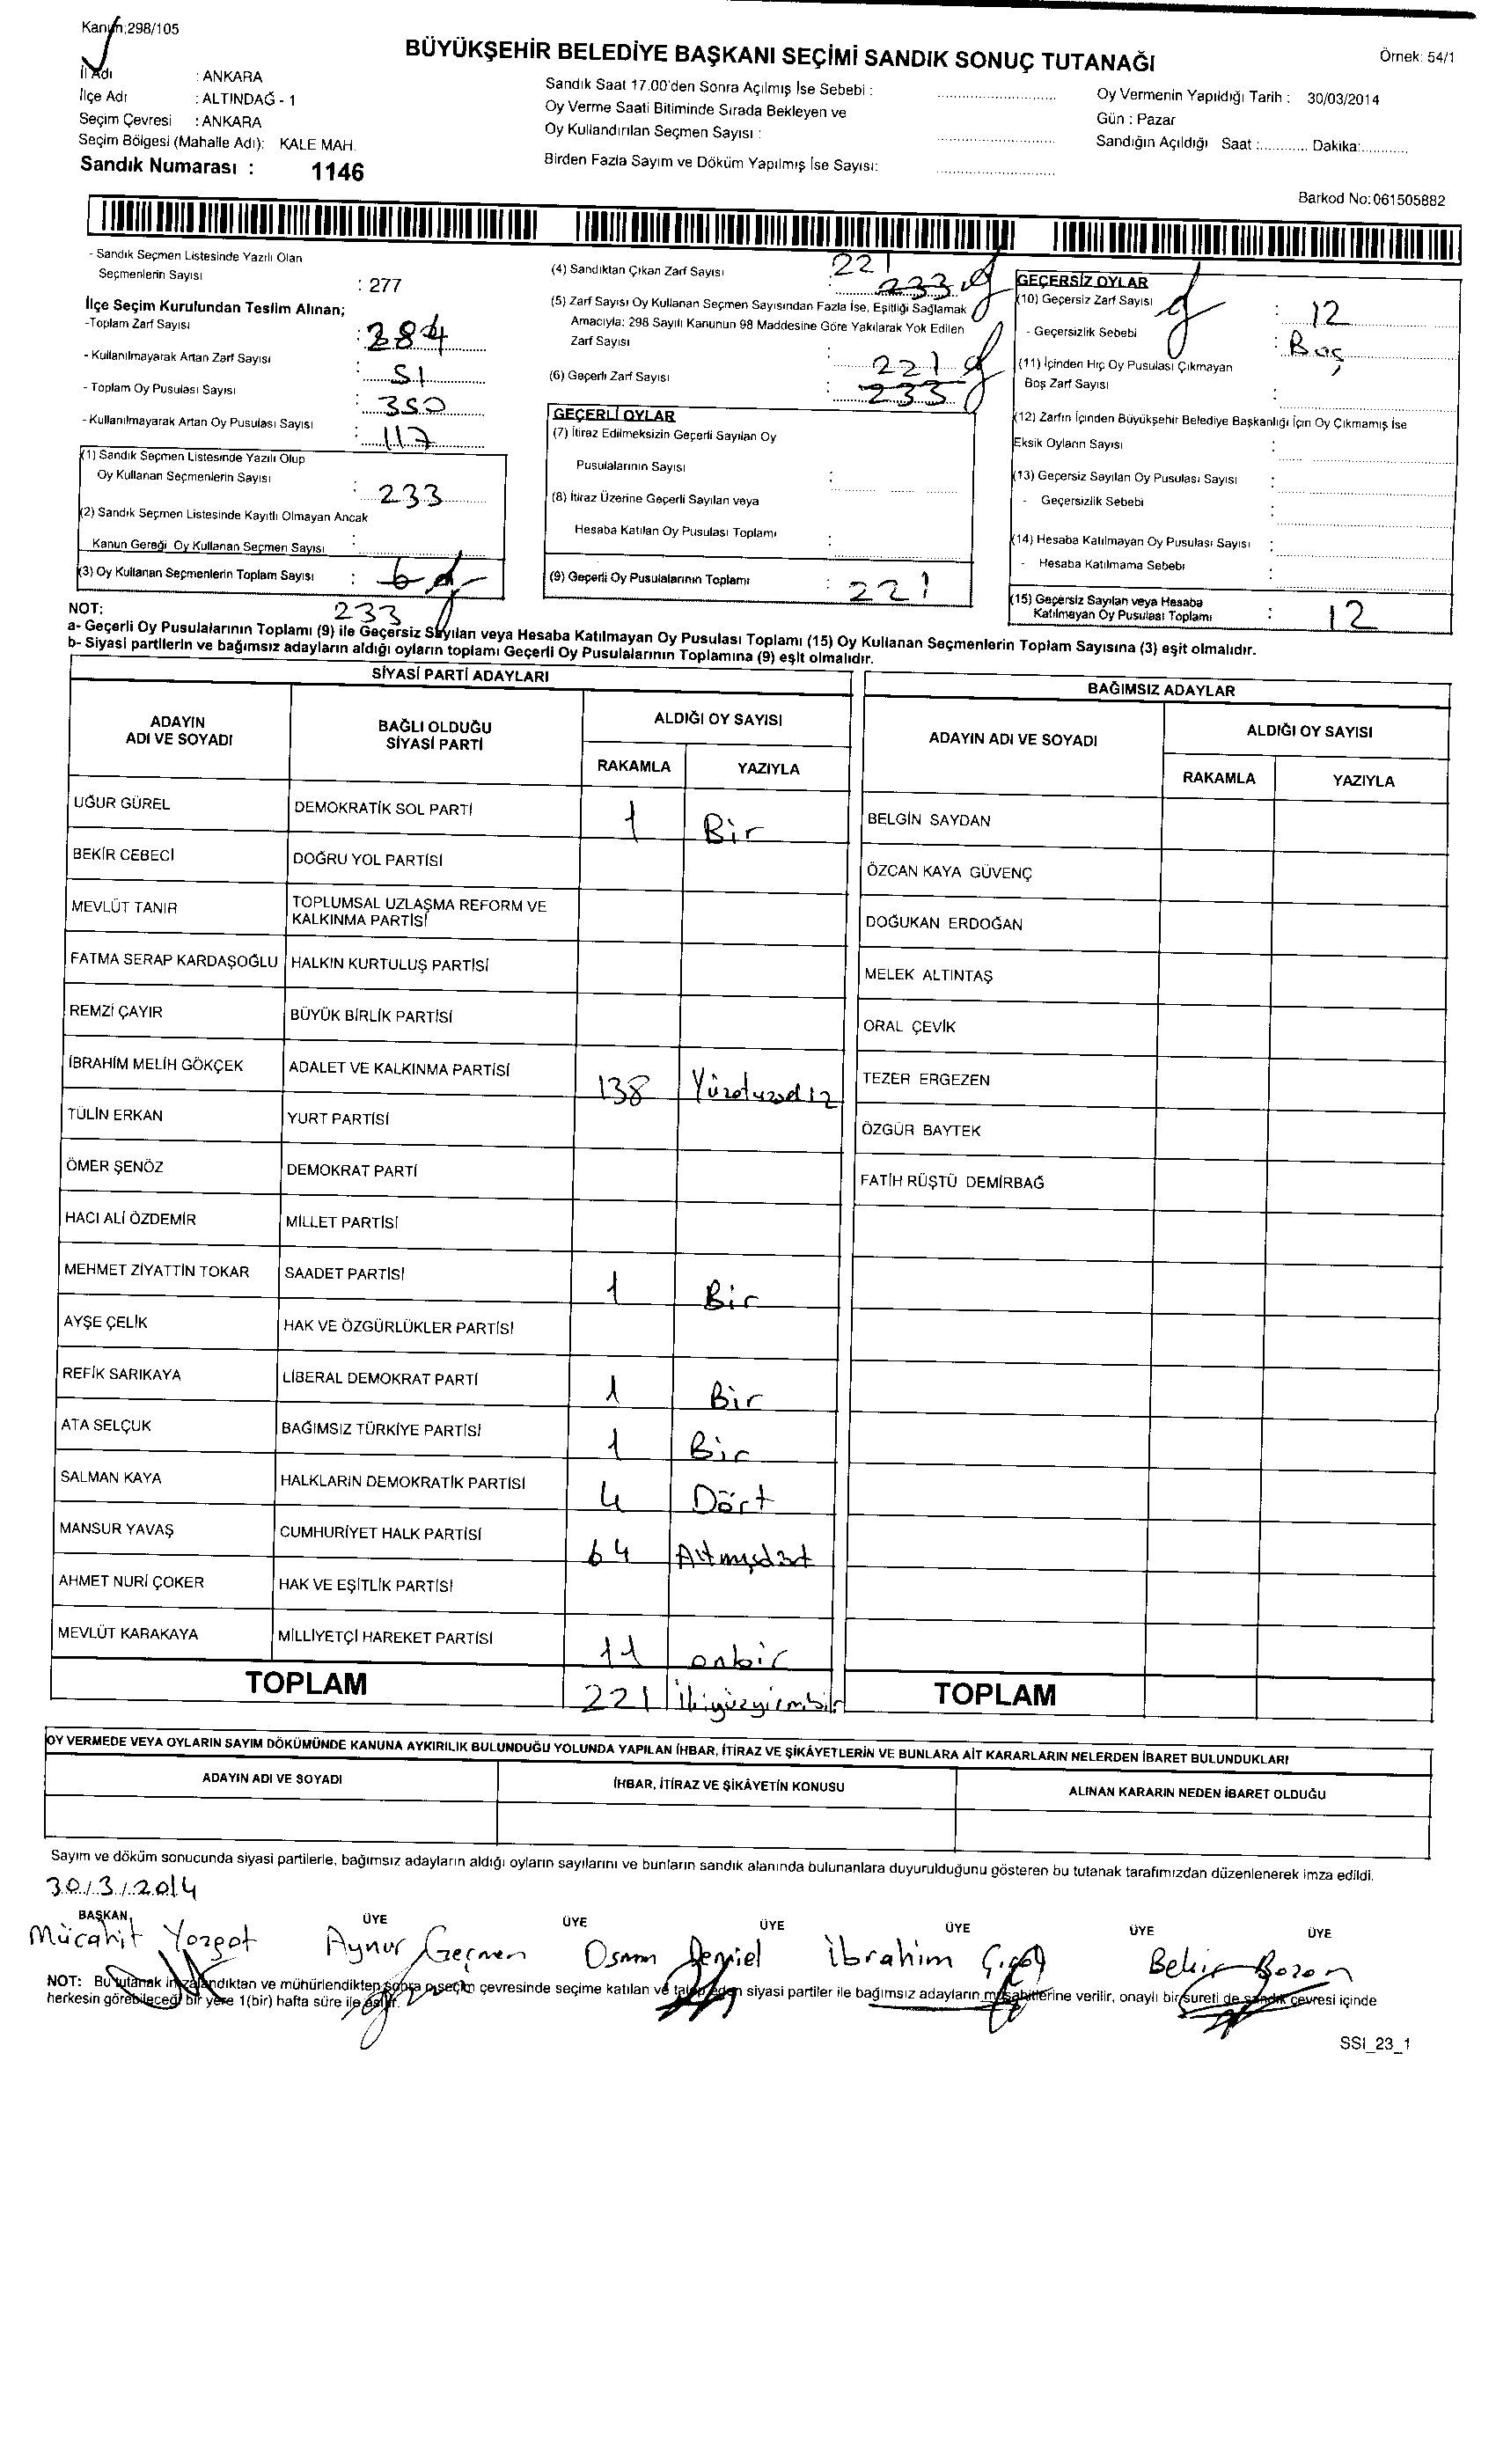 Kanun:298/105
BÜYÜKŞEHİR BELEDİYE BAŞKANI SEÇİMİ SANDIK SONUÇ TUTANAĞI
Örnek: 54/1
İl Adı : ANKARA
İlçe Adı : ALTINDAĞ - 1
Seçim Çevresi : ANKARA
Seçim Bölgesi (Mahalle Adı): KALE MAH.
Sandık Numarası : 1146
Sandık Saat 17.00'den Sonra Açılmış İse Sebebi :
Oy Verme Saati Bitiminde Sırada Bekleyen ve
Oy Kullandırılan Seçmen Sayısı :
Birden Fazla Sayım ve Döküm Yapılmış İse Sayısı:
Oy Vermenin Yapıldığı Tarih : 30/03/2014
Gün : Pazar
Sandığın Açıldığı Saat :............ Dakika:............
Barkod No:061505882
- Sandık Seçmen Listesinde Yazılı Olan
Seçmenlerin Sayısı : 277
İlçe Seçim Kurulundan Teslim Alınan;
-Toplam Zarf Sayısı : 284
- Kullanılmayarak Artan Zarf Sayısı : 51
- Toplam Oy Pusulası Sayısı : 350
- Kullanılmayarak Artan Oy Pusulası Sayısı : 117
(1) Sandık Seçmen Listesinde Yazılı Olup
Oy Kullanan Seçmenlerin Sayısı : 233
(2) Sandık Seçmen Listesinde Kayıtlı Olmayan Ancak
Kanun Gereği Oy Kullanan Seçmen Sayısı :
(3) Oy Kullanan Seçmenlerin Toplam Sayısı :
233
(4) Sandıktan Çıkan Zarf Sayısı : 221
233
(5) Zarf Sayısı Oy Kullanan Seçmen Sayısından Fazla İse, Eşitliği Sağlamak
Amacıyla: 298 Sayılı Kanunun 98 Maddesine Göre Yakılarak Yok Edilen
Zarf Sayısı :
(6) Geçerli Zarf Sayısı : 221
233
GEÇERLİ OYLAR
(7) İtiraz Edilmeksizin Geçerli Sayılan Oy
Pusulalarının Sayısı :
(8) İtiraz Üzerine Geçerli Sayılan veya
Hesaba Katılan Oy Pusulası Toplamı :
(9) Geçerli Oy Pusulalarının Toplamı : 221
GEÇERSİZ OYLAR
(10) Geçersiz Zarf Sayısı : 12
- Geçersizlik Sebebi : Boş
(11) İçinden Hiç Oy Pusulası Çıkmayan
Boş Zarf Sayısı :
(12) Zarfın İçinden Büyükşehir Belediye Başkanlığı İçin Oy Çıkmamış İse
Eksik Oyların Sayısı :
(13) Geçersiz Sayılan Oy Pusulası Sayısı :
- Geçersizlik Sebebi :
(14) Hesaba Katılmayan Oy Pusulası Sayısı :
- Hesaba Katılmama Sebebi :
(15) Geçersiz Sayılan veya Hesaba
Katılmayan Oy Pusulası Toplamı : 12
NOT:
a- Geçerli Oy Pusulalarının Toplamı (9) ile Geçersiz Sayılan veya Hesaba Katılmayan Oy Pusulası Toplamı (15) Oy Kullanan Seçmenlerin Toplam Sayısına (3) eşit olmalıdır.
b- Siyasi partilerin ve bağımsız adayların aldığı oyların toplamı Geçerli Oy Pusulalarının Toplamına (9) eşit olmalıdır.
SİYASİ PARTİ ADAYLARI
ADAYIN ADI VE SOYADI
BAĞLI OLDUĞU SİYASİ PARTİ
ALDIĞI OY SAYISI
RAKAMLA YAZIYLA
UĞUR GÜREL DEMOKRATİK SOL PARTİ 1 Bir
BEKİR CEBECİ DOĞRU YOL PARTİSİ
MEVLÜT TANIR TOPLUMSAL UZLAŞMA REFORM VE KALKINMA PARTİSİ
FATMA SERAP KARDAŞOĞLU HALKIN KURTULUŞ PARTİSİ
REMZİ ÇAYIR BÜYÜK BİRLİK PARTİSİ
İBRAHİM MELİH GÖKÇEK ADALET VE KALKINMA PARTİSİ 138
TÜLİN ERKAN YURT PARTİSİ
ÖMER ŞENÖZ DEMOKRAT PARTİ
HACI ALİ ÖZDEMİR MİLLET PARTİSİ
MEHMET ZİYATTİN TOKAR SAADET PARTİSİ 1 Bir
AYŞE ÇELİK HAK VE ÖZGÜRLÜKLER PARTİSİ
REFİK SARIKAYA LİBERAL DEMOKRAT PARTİ 1 Bir
ATA SELÇUK BAĞIMSIZ TÜRKİYE PARTİSİ 1 Bir
SALMAN KAYA HALKLARIN DEMOKRATİK PARTİSİ 4 Dört
MANSUR YAVAŞ CUMHURİYET HALK PARTİSİ 64 Altmışdört
AHMET NURİ ÇOKER HAK VE EŞİTLİK PARTİSİ
MEVLÜT KARAKAYA MİLLİYETÇİ HAREKET PARTİSİ 11 onbir
TOPLAM 221 İkiyüzyirmibir
BAĞIMSIZ ADAYLAR
ADAYIN ADI VE SOYADI
ALDIĞI OY SAYISI
RAKAMLA YAZIYLA
BELGİN SAYDAN
ÖZCAN KAYA GÜVENÇ
DOĞUKAN ERDOĞAN
MELEK ALTINTAŞ
ORAL ÇEVİK
TEZER ERGEZEN
ÖZGÜR BAYTEK
FATİH RÜŞTÜ DEMİRBAĞ
TOPLAM
OY VERMEDE VEYA OYLARIN SAYIM DÖKÜMÜNDE KANUNA AYKIRILIK BULUNDUĞU YOLUNDA YAPILAN İHBAR, İTİRAZ VE ŞİKÂYETLERİN VE BUNLARA AİT KARARLARIN NELERDEN İBARET BULUNDUKLARI
ADAYIN ADI VE SOYADI
İHBAR, İTİRAZ VE ŞİKÂYETİN KONUSU
ALINAN KARARIN NEDEN İBARET OLDUĞU
Sayım ve döküm sonucunda siyasi partilerle, bağımsız adayların aldığı oyların sayılarını ve bunların sandık alanında bulunanlara duyurulduğunu gösteren bu tutanak tarafımızdan düzenlenerek imza edildi.
30/3/2014
BAŞKAN ÜYE ÜYE ÜYE ÜYE ÜYE ÜYE
Mücahit Yozgat Aynur Geçmen Osman İbrahim Bekir Bozan
NOT: Bu tutanak imzalandıktan ve mühürlendikten sonra o seçim çevresinde seçime katılan ve talep eden siyasi partiler ile bağımsız adayların müşahitlerine verilir, onaylı bir sureti de sandık çevresi içinde
herkesin görebileceği bir yere 1(bir) hafta süre ile asılır.
SSI_23_1